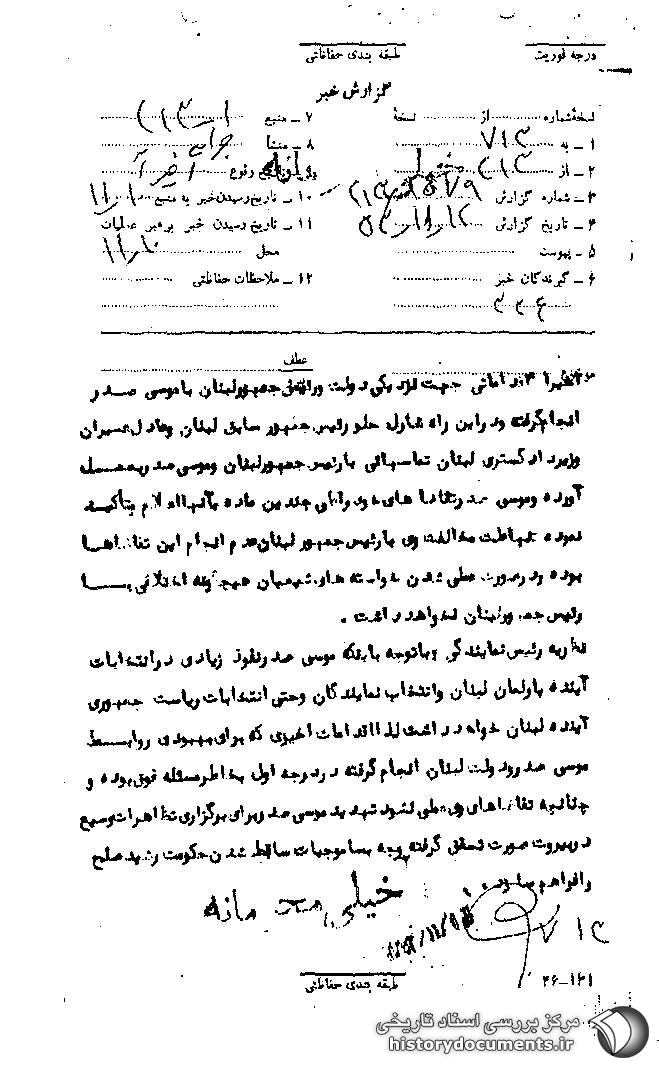 درجه فوریت
طبقه بندی حفاظتی
گزارش خبر
نسخهٔ شماره .......... از .......... نسخهٔ
۱ ـ به ۷۱۳
۲ ـ از
۳ ـ شماره گزارش
۴ ـ تاریخ گزارش
۵ ـ پیوست
۶ ـ گیرندگان خبر
۷ ـ منبع
۸ ـ منشأ
وقوع
۱۰ ـ تاریخ رسیدن خبر به منبع
۱۱ ـ تاریخ رسیدن خبر برهبر عملیات
محل
۱۲ ـ ملاحظات حفاظتی
عطف
اخیرا اقداماتی جهت نزدیکی دولت ورئیس جمهورلبنان با موسی صدر
انجام گرفته ودراین راه شارل حلو رئیس جمهور سابق لبنان وعادل عسیران
وزیردادگستری لبنان تماسهائی بارئیس جمهورلبنان وموسی صدر بعمل
آورده وموسی صدرتقاضاهای خودرا طی چندین ماده بآنها اعلام وتأکید
نموده تنها علت مخالفت وی با رئیس جمهور لبنان عدم انجام این تقاضاها
بوده ودرصورت عملی شدن خواسته های شیعیان هیچگونه اختلافی بــا
رئیس جمهورلبنان نخواهد داشت .
نظریه رئیس نمایندگی : باتوجه باینکه موسی صدرنفوذ زیادی درانتخابات
آینده پارلمان لبنان وانتخاب نمایندگان وحتی انتخابات ریاست جمهوری
آینده لبنان خواهد داشت لذا اقدامات اخیری که برای بهبودی روابــط
موسی صدرودولت لبنان انجام گرفته دردرجه اول بخاطرمسئله فوق بوده و
چنانچه تقاضاهای وی عملی نشود تهدید موسی صدربرای برگزاری تظاهرات وسیع
دربیروت صورت تحقق گرفته وچه بسا موجبات ساقط شدن حکومت رشید صلح
رافراهم سازد .
خیلی محرمانه
۷۱۳
۴۶-۱۲۱
طبقه بندی حفاظتی
مرکز بررسی اسناد تاریخی
historydocuments.ir